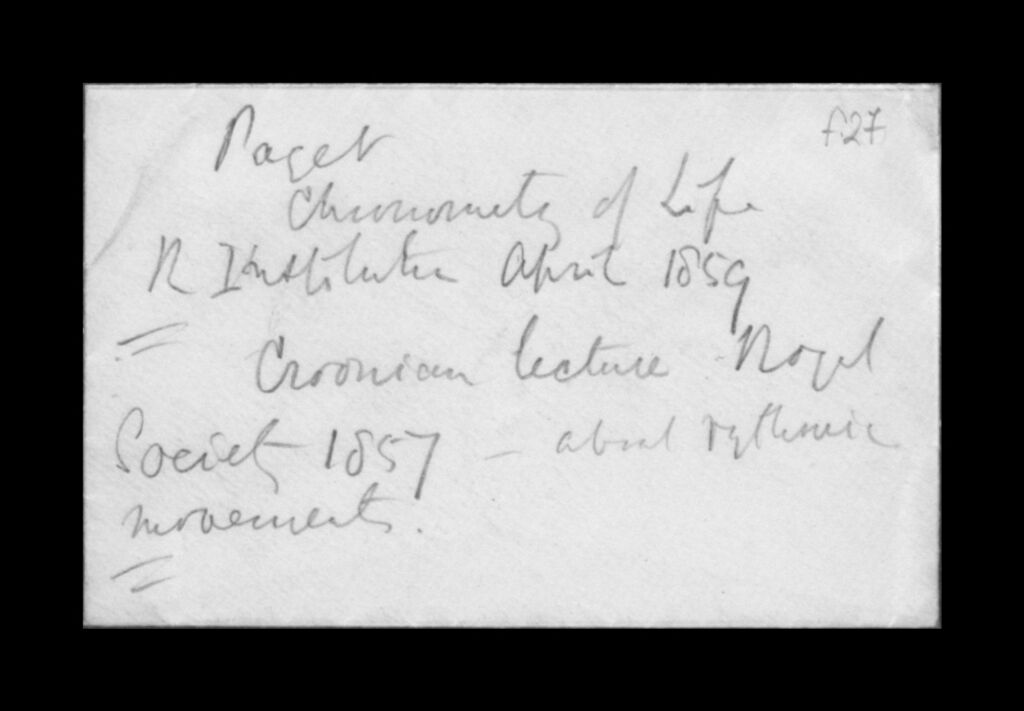 f.27
Paget
Chronometry of Life
R Institution April 1859
Croonian lecture Royal
Society 1857 — about rythmic
movements.